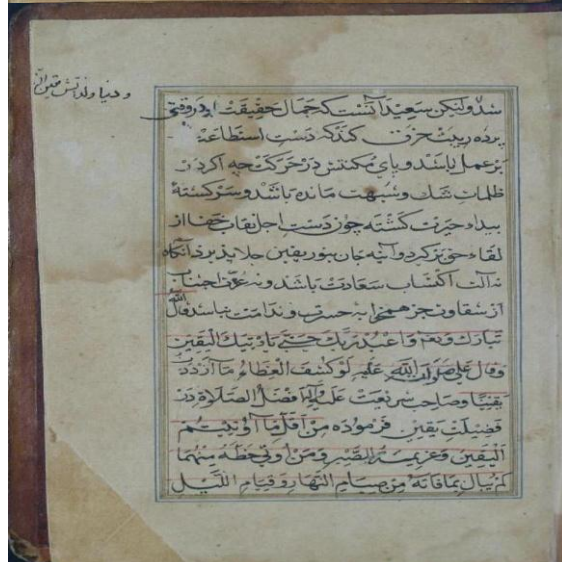 و دنیا ولذتش
شد ولیکن سعید آنست که جمال حقیقت او در وقتی
پرده ریبت خرق کند که دست استطاعة
بر عمل باشد و پای مکنتش در حرکت چه آکر در
ظلمات شک و شبهت مانده باشد و سرکشتهٔ
بیداء حیرت کشته چون دست اجل نقاب خفا از
لقاء حق بر کرد و آینه جان بنور یقین جلا پذیرد آنکاه
نه آلت اکتساب سعادت باشد و نه اجتناب
از شقاوت بجز همخوابه حسرت و ندامت نباشد قال الله
تبارك وتعم وَاعْبُدْ رَبَّكَ حَتّى يَأْتِيَكَ الْيَقين
وقال علي صلوات الله عليه لَوْ كشف الغطاءُ مَا ازْدَدْتُ
يقينًا وصاحب شريعت عَلَيْهِ أفضلُ الصلاة در
فضيلت يقين فرموده مِنْ أقَلِّ مَا أوتيتم
اليقين وعزيمة الصبر ومن أوتي حظه منهما
لم يبال بما فاته من صيام النهار وقيام الليل